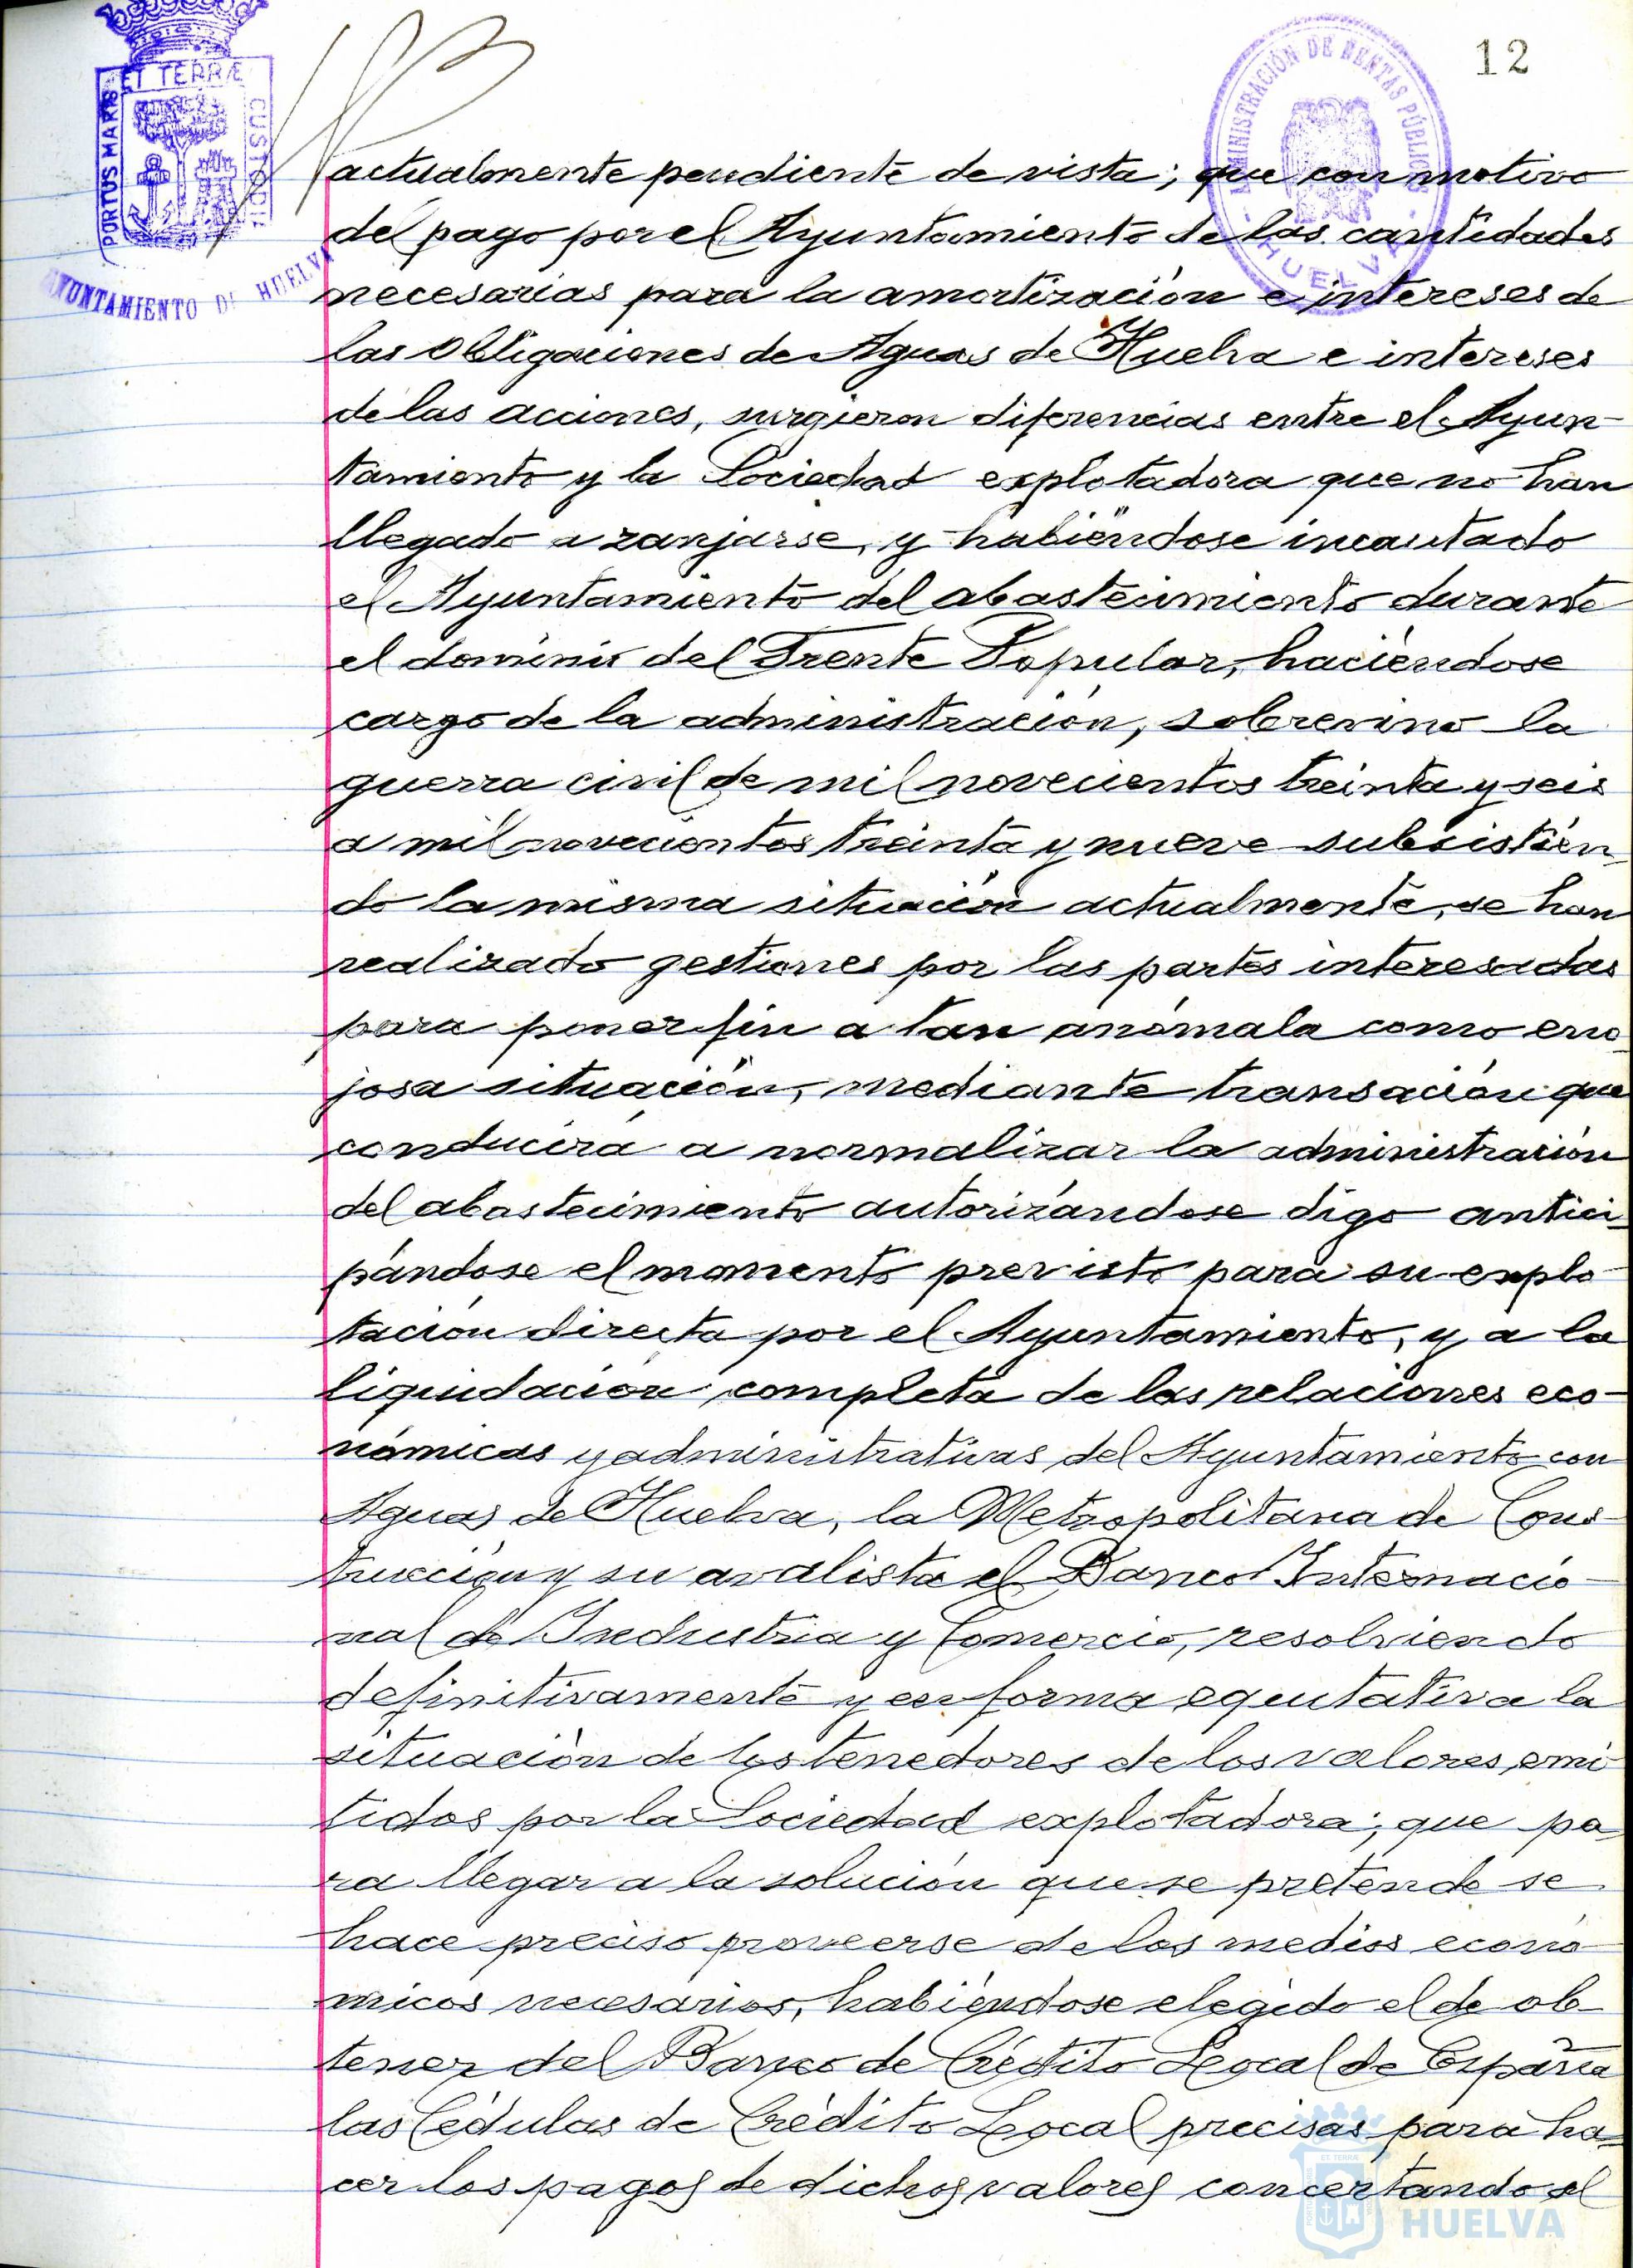 12
ET TERRÆ
PORTUS MARIS
CUSTODIA
AYUNTAMIENTO DE HUELVA
ADMINISTRACIÓN DE RENTAS PÚBLICAS
- HUELVA -
actualmente pendiente de vista; que con motivo
del pago por el Ayuntamiento de las cantidades
necesarias para la amortización e intereses de
las Obligaciones de Aguas de Huelva e intereses
de las acciones, surgieron diferencias entre el Ayun-
tamiento y la Sociedad explotadora que no han
llegado a zanjarse, y habiéndose incautado
el Ayuntamiento del abastecimiento durante
el dominio del Frente Popular, haciéndose
cargo de la administración, sobrevino la
guerra civil de mil novecientos treinta y seis
a mil novecientos treinta y nueve subsistien-
do la misma situación actualmente, se han
realizado gestiones por las partes interesadas
para poner fin a tan anómala como eno-
josa situación, mediante transación que
conducirá a normalizar la administración
del abastecimiento autorizándose digo antici-
pándose el momento previsto para su explo-
tación directa por el Ayuntamiento, y a la
liquidación completa de las relaciones eco-
nómicas y administrativas del Ayuntamiento con
Aguas de Huelva, la Metropolitana de Cons-
trucción y su avalista el Banco Internacio-
nal de Industria y Comercio, resolviendo
definitivamente y en forma equitativa la
situación de los tenedores de los valores emi-
tidos por la Sociedad explotadora; que pa-
ra llegar a la solución que se pretende se
hace preciso proveerse de los medios econó-
micos necesarios, habiéndose elegido el de ob-
tener del Banco de Crédito Local de España
las Cédulas de Crédito Local precisas para ha-
cer los pagos de dichos valores concertando el
HUELVA